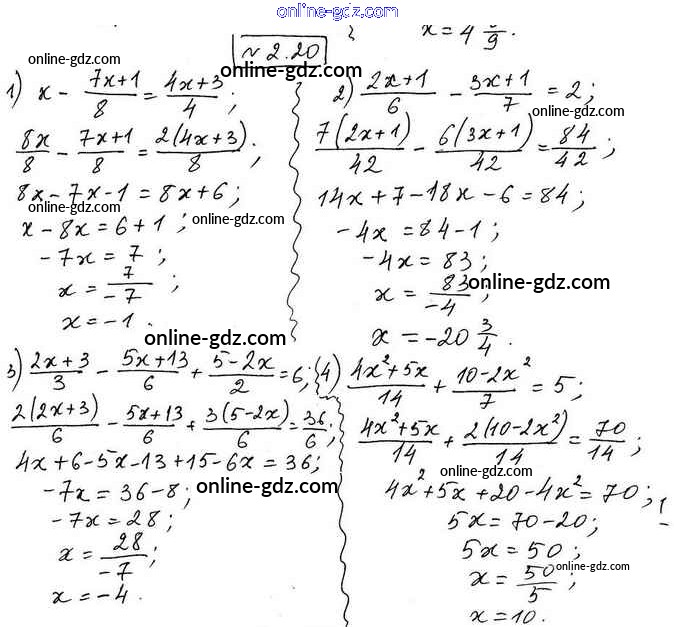 online-gdz.com
x = 4 8/9.
№ 2.20
online-gdz.com
1) x - (7x+1)/8 = (4x+3)/4;
online-gdz.com
8x/8 - (7x+1)/8 = 2(4x+3)/8;
8x - 7x - 1 = 8x + 6;
online-gdz.com
online-gdz.com
x - 8x = 6 + 1;
-7x = 7;
x = 7/-7;
x = -1.
2) (2x+1)/6 - (3x+1)/7 = 2;
online-gdz.com
7(2x+1)/42 - 6(3x+1)/42 = 84/42;
14x + 7 - 18x - 6 = 84;
-4x = 84 - 1;
-4x = 83;
online-gdz.com
x = 83/-4;
x = -20 3/4.
online-gdz.com
3) (2x+3)/3 - (5x+13)/6 + (5-2x)/2 = 6;
2(2x+3)/6 - (5x+13)/6 + 3(5-2x)/6 = 36/6;
online-gdz.com
4x + 6 - 5x - 13 + 15 - 6x = 36;
-7x = 36 - 8;
online-gdz.com
-7x = 28;
x = 28/-7;
x = -4.
4) (4x²+5x)/14 + (10-2x²)/7 = 5;
(4x²+5x)/14 + 2(10-2x²)/14 = 70/14;
online-gdz.com
4x² + 5x + 20 - 4x² = 70;
5x = 70 - 20;
5x = 50;
online-gdz.com
x = 50/5;
x = 10.
online-gdz.com